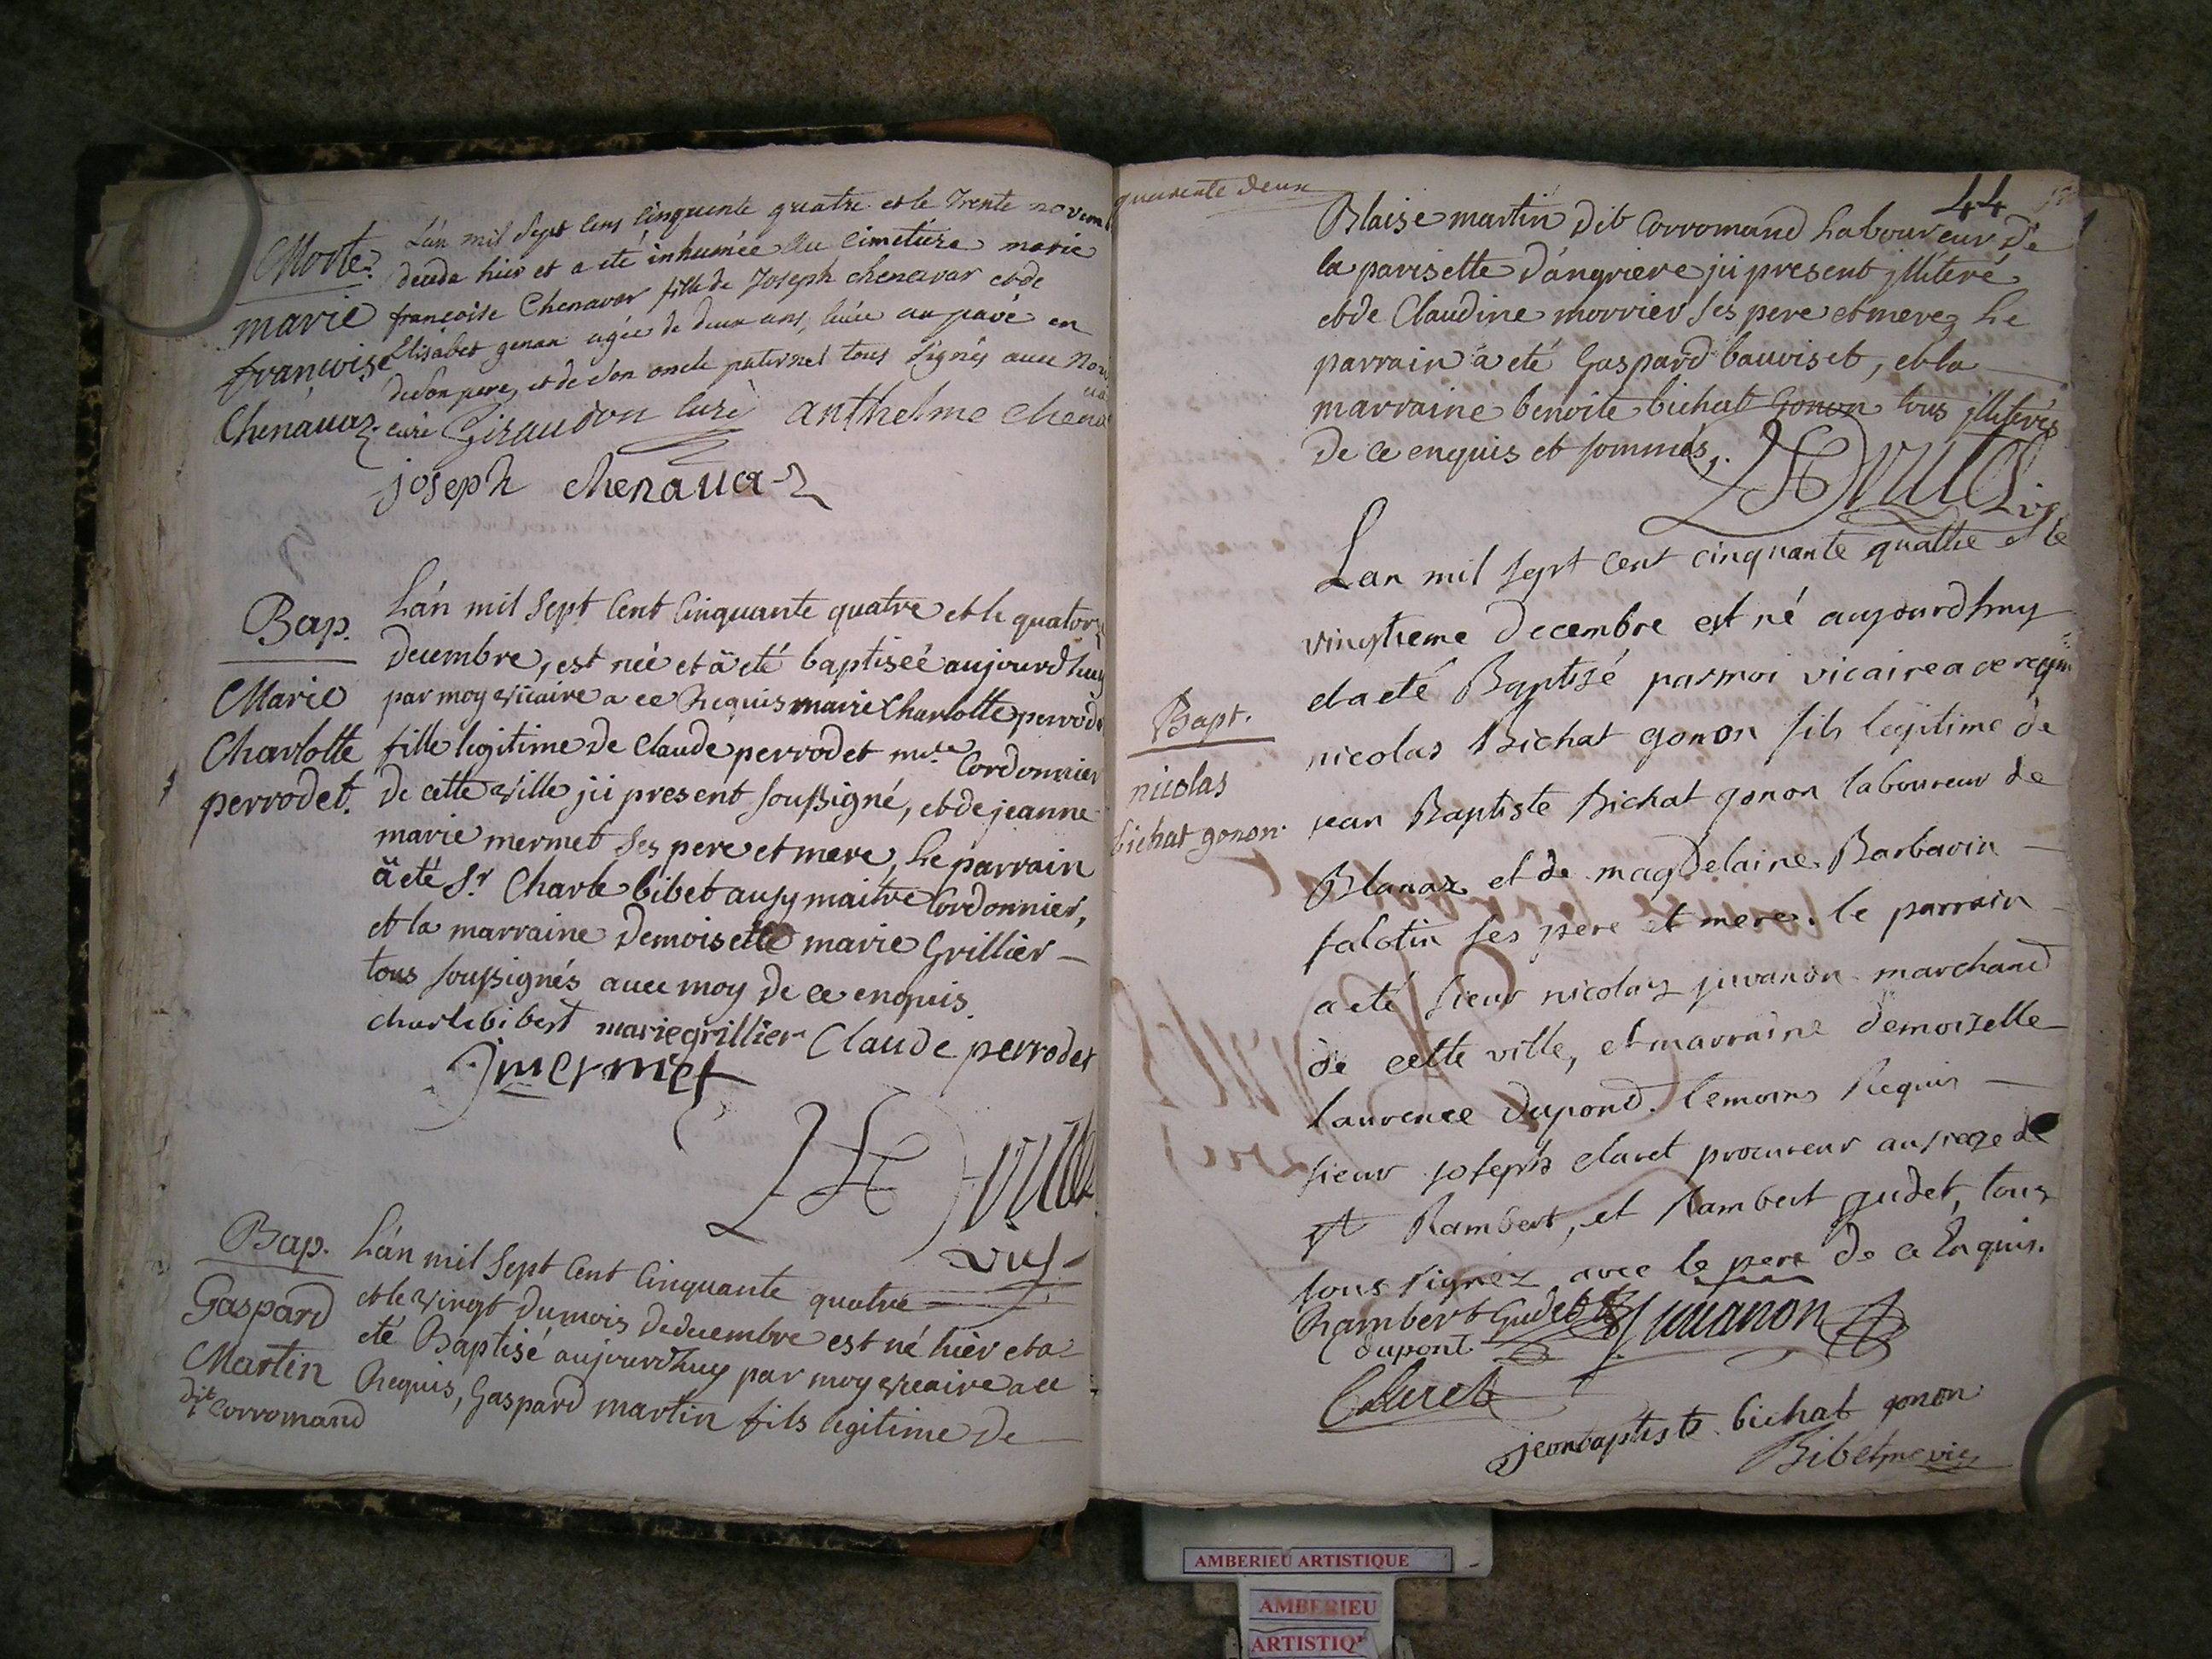 Morte
marie
francoise
Chenavaz
Lán mil Sept Cens Cinquente quatre et le Trente novem
deceda hier et a eté inhumée Au Cimetiere marie
francoise Chenavar fille de Joseph chenavar et de
Elisabet genan agée de deux ans, au pavé en
de son pere, et de son oncle paternel tous Signés avec
curé Giraudon Curé anthelme Chena
joseph chenavaz
Bap.
Marie
Charlotte
perrodet.
Lán mil Sept Cent Cinquante quatre et le quatorz
decembre, est neé et à eté baptiseé aujourdhuy
par moy vicaire a ce Requis marie Charlotte perrode
fille legitime de Claude perrodet me. Cordonnier
de cette ville ici present soussigné, et de jeanne
marie mermet ses pere et mere, Le parrain
à eté Sr Charle bibet aussy maitre Cordonnier,
et la marraine demoiselle marie Grillier
tous soussignés avec moy de ce enquis.
charle bibest marie grillier Claude perrodet
jmermet
vic
Bap.
Gaspard
Martin
dit Corromand
Lán mil Sept Cent Cinquante quatre
et le vingt du mois de decembre est né hier et a
eté Baptisé aujourdhuy par moy vicaire a ce
Requis, Gaspard martin fils legitime de
quarente deux
44
Blaise martin dit Corromand Laboureur de
la parisette d'angriere ici present illiteré
et de Claudine morrier ses pere et mere, Le
parrain à eté Gaspard bauviset, et la
marraine benoite bichat Gonon tous illiterés
de ce enquis et sommés.
vic
Bapt.
nicolas
bichat gonon.
Lan mil sept cent cinquante quattre et le
vingtieme decembre est né aujourdhuy
et a eté Baptisé par moi vicaire a ce requi
nicolas Bichat gonon fils legitime de
jean Baptiste Bichat gonon laboureur de
Blanaz et de magdelaine Barbarin
falatin ses père et mere. le parrain
a eté sieur nicolas juvanon marchand
de cette ville, et marraine demoizelle
laurence dupond. temoins Requis
sieur joseph claret procureur au siege de
st Rambert, et Rambert gudet, tous
tous signez avec le pere de ce Enquis.
Rambert Gudet Juvanon
dupont
Claret
jeanbaptiste bichat gonon
Bibet vic
AMBERIEU ARTISTIQUE
AMBERIEU
ARTISTIQ